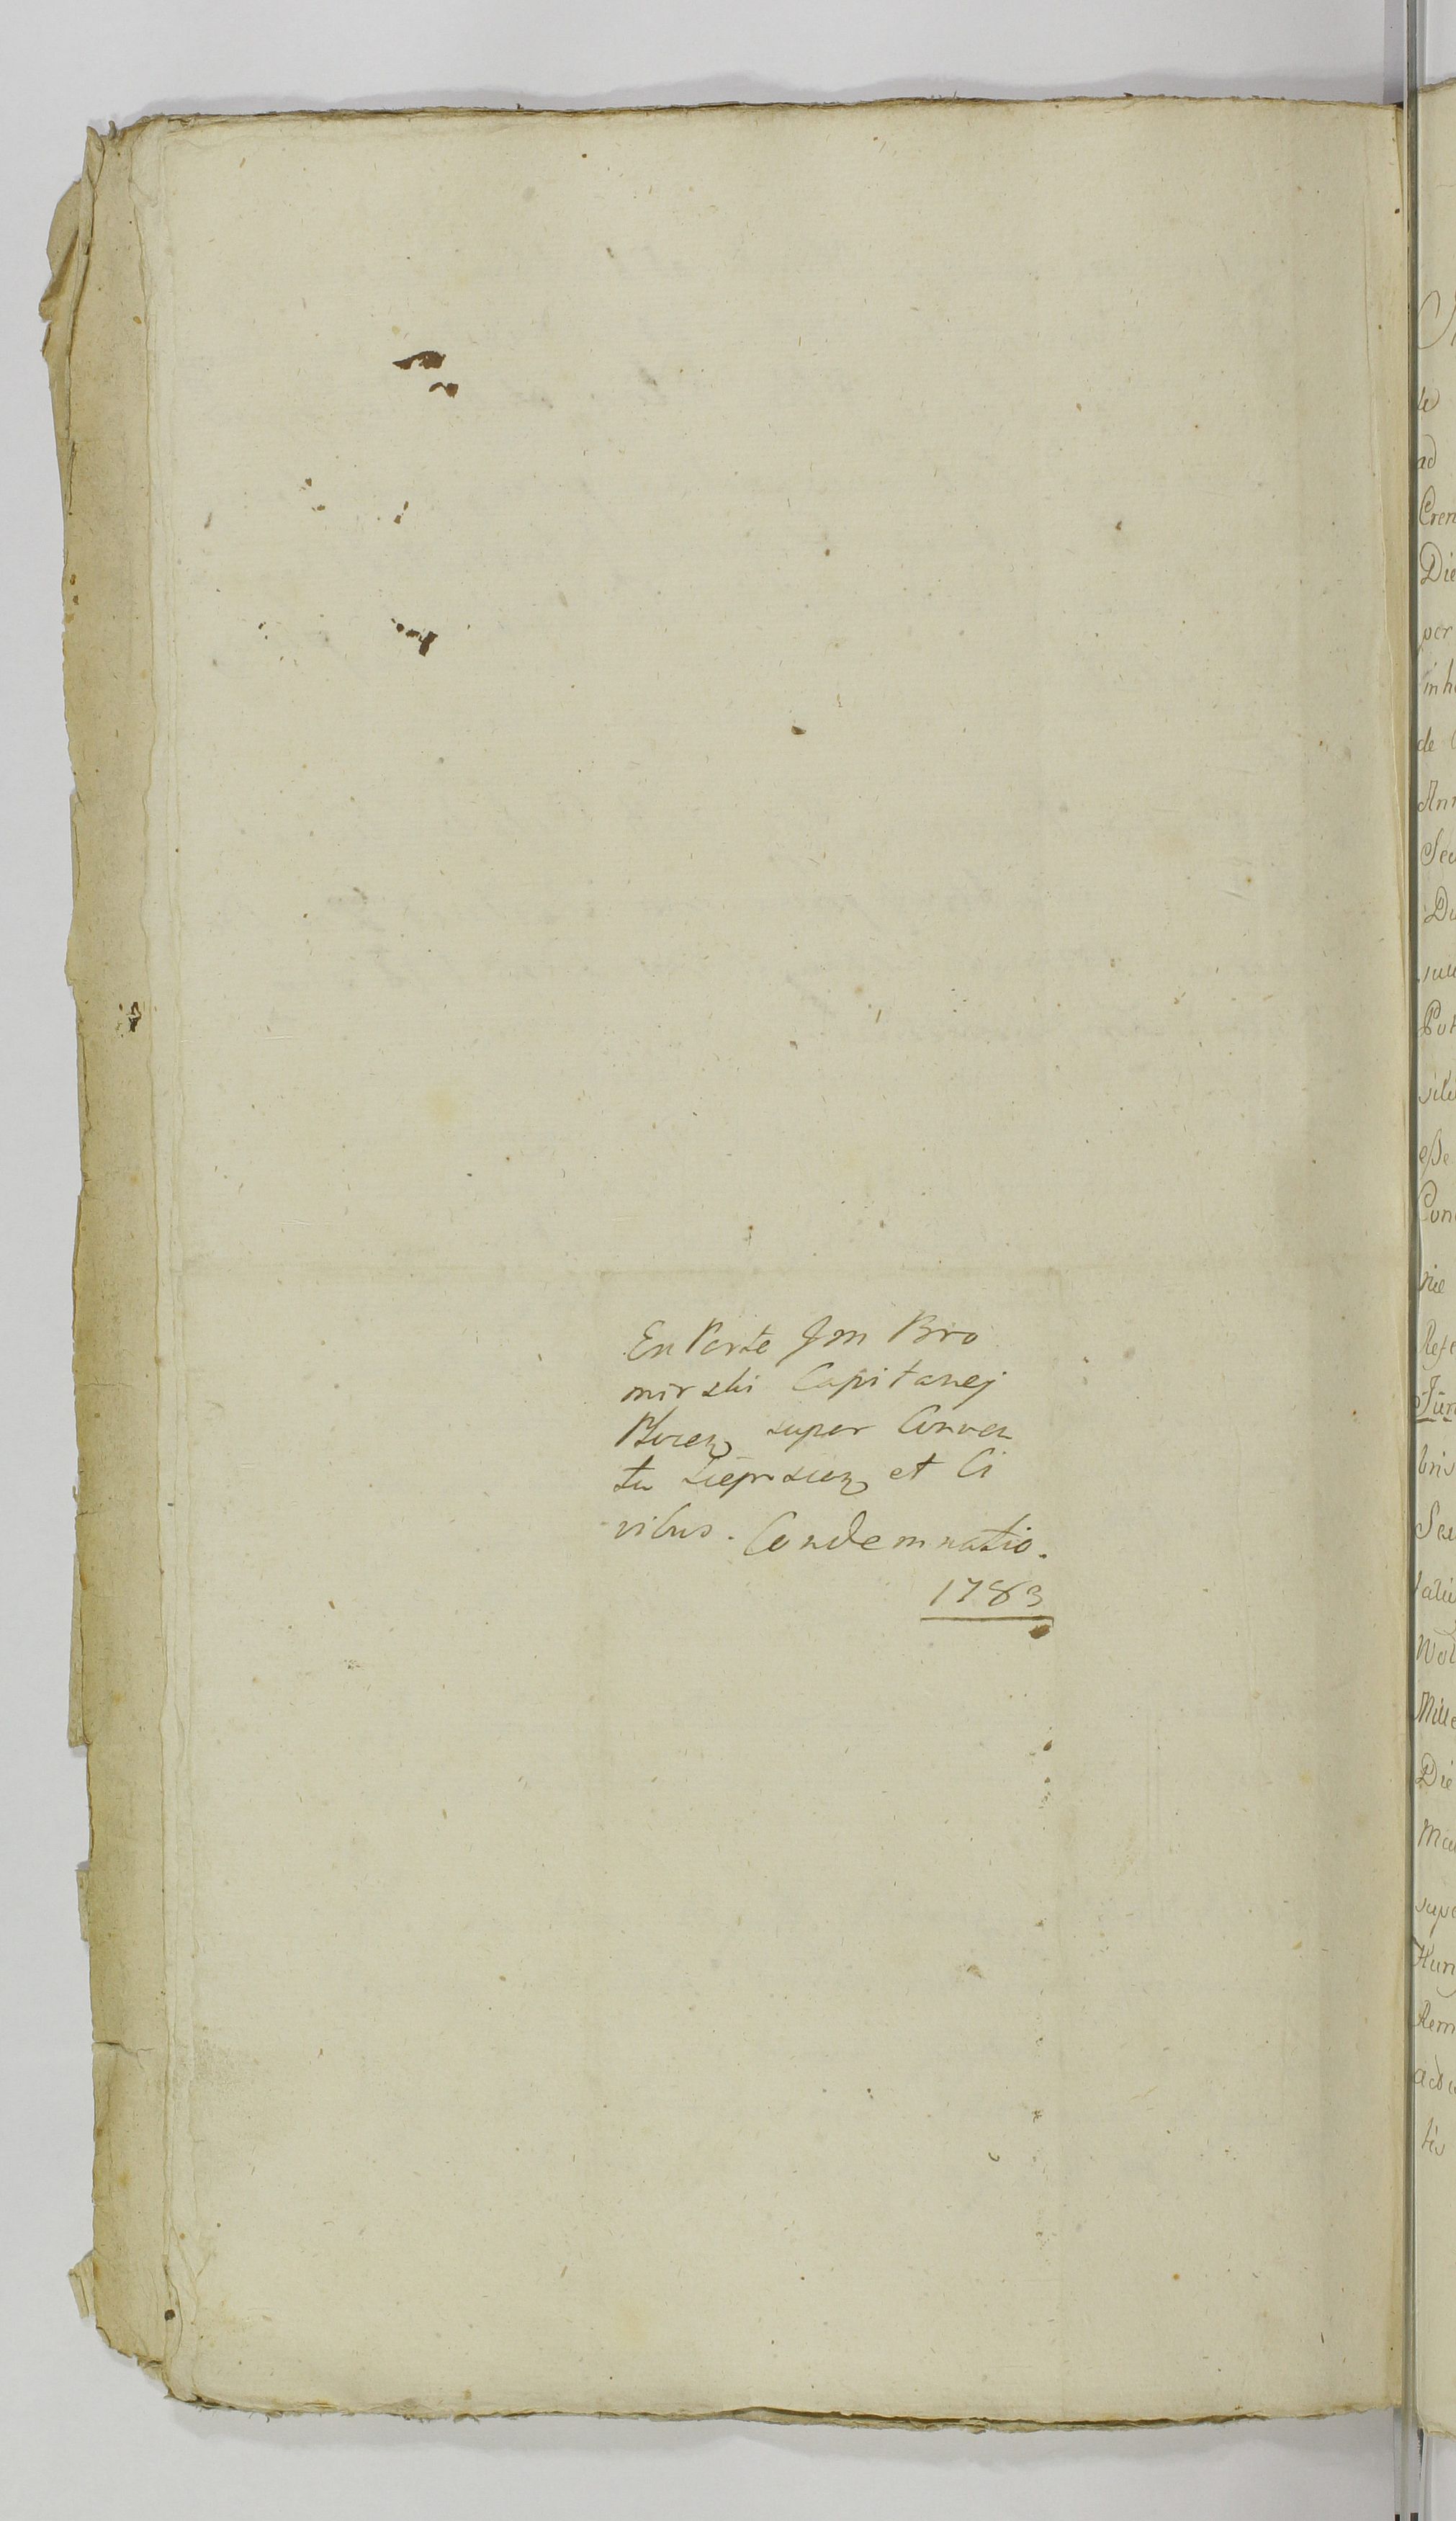 Ex Parte Jm Bro
mirski Capitanej
Plocen super Conven
tu Sieprscien et Ci
vibus. Condemnatio.
1783
te
ad
Crem
Die
per
inh
de
Ann
Sec
Du
suu
Pot
eße
Con
nie
Refe
Jun
bris
Sex
Wol
Mille
Die
Ma
supe
Hun
Rem
tis